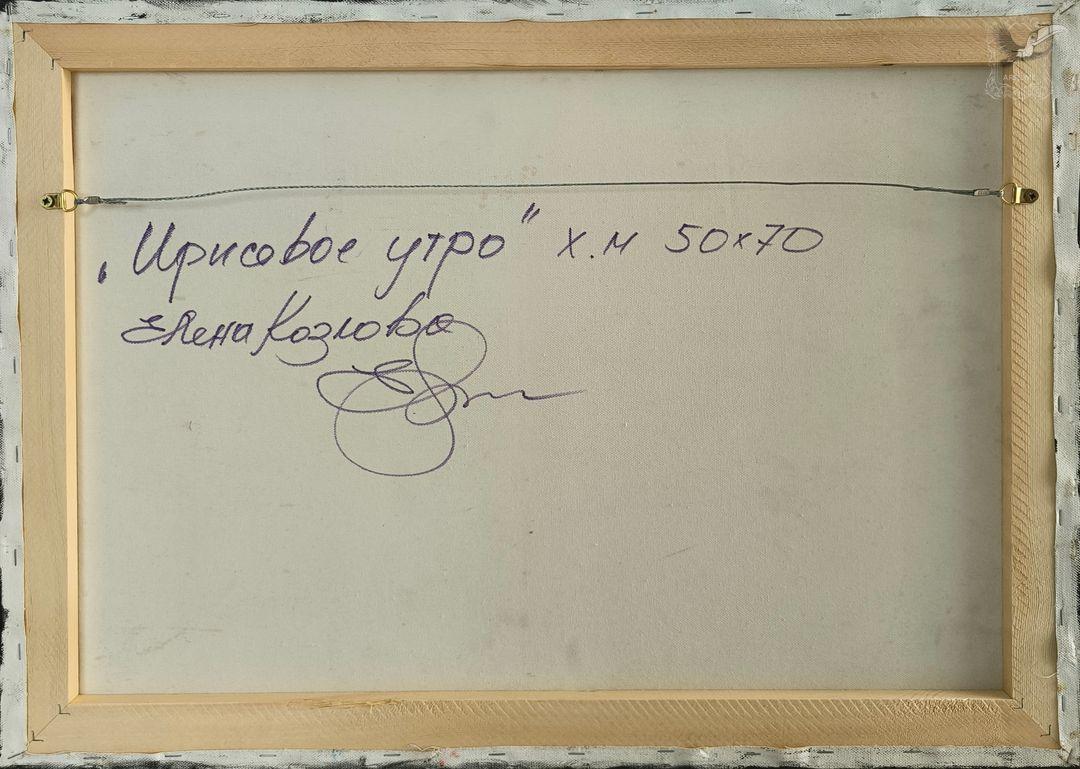 „Ирисовое утро" х.м 50х70
Елена Козлова